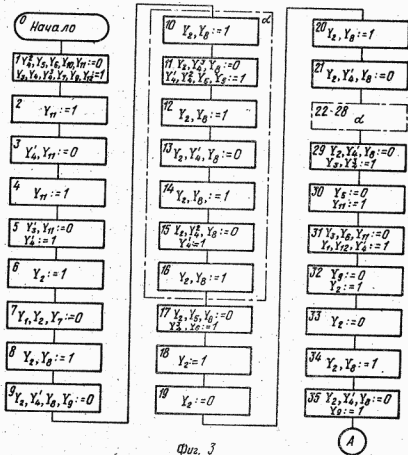 0 Начало
2 Y₁₁:=1
3 Y₄', Y₁₁:=0
4 Y₁₁:=1
5 Y₃', Y₁₁:=0
Y₄':=1
6 Y₂:=1
7 Y₁, Y₂, Y₇:=0
8 Y₂, Y₈:=1
9 Y₂, Y₄', Y₈, Y₉:=0
α
10 Y₂, Y₈:=1
11 Y₂, Y₄³, Y₈:=0
Y₄', Y₄², Y₅, Y₉:=1
12 Y₂, Y₈:=1
13 Y₂, Y₄', Y₈:=0
14 Y₂, Y₈,:=1
15 Y₂, Y₄², Y₈:=0
Y₄':=1
16 Y₂, Y₈:=1
17 Y₂, Y₅, Y₈:=0
18 Y₂:=1
19 Y₂:=0
20 Y₂, Y₈:=1
21 Y₂, Y₄', Y₈:=0
22-28 α
29 Y₂, Y₄', Y₈:=0
30 Y₅:=0
Y₁₁:=1
31 Y₃, Y₆, Y₁₁:=0
Y₁, Y₁₂, Y₄':=1
32 Y₉:=0
Y₂:=1
33 Y₂:=0
34 Y₂, Y₈:=1
35 Y₂, Y₄', Y₈:=0
Y₉:=1
А
Фиг. 3